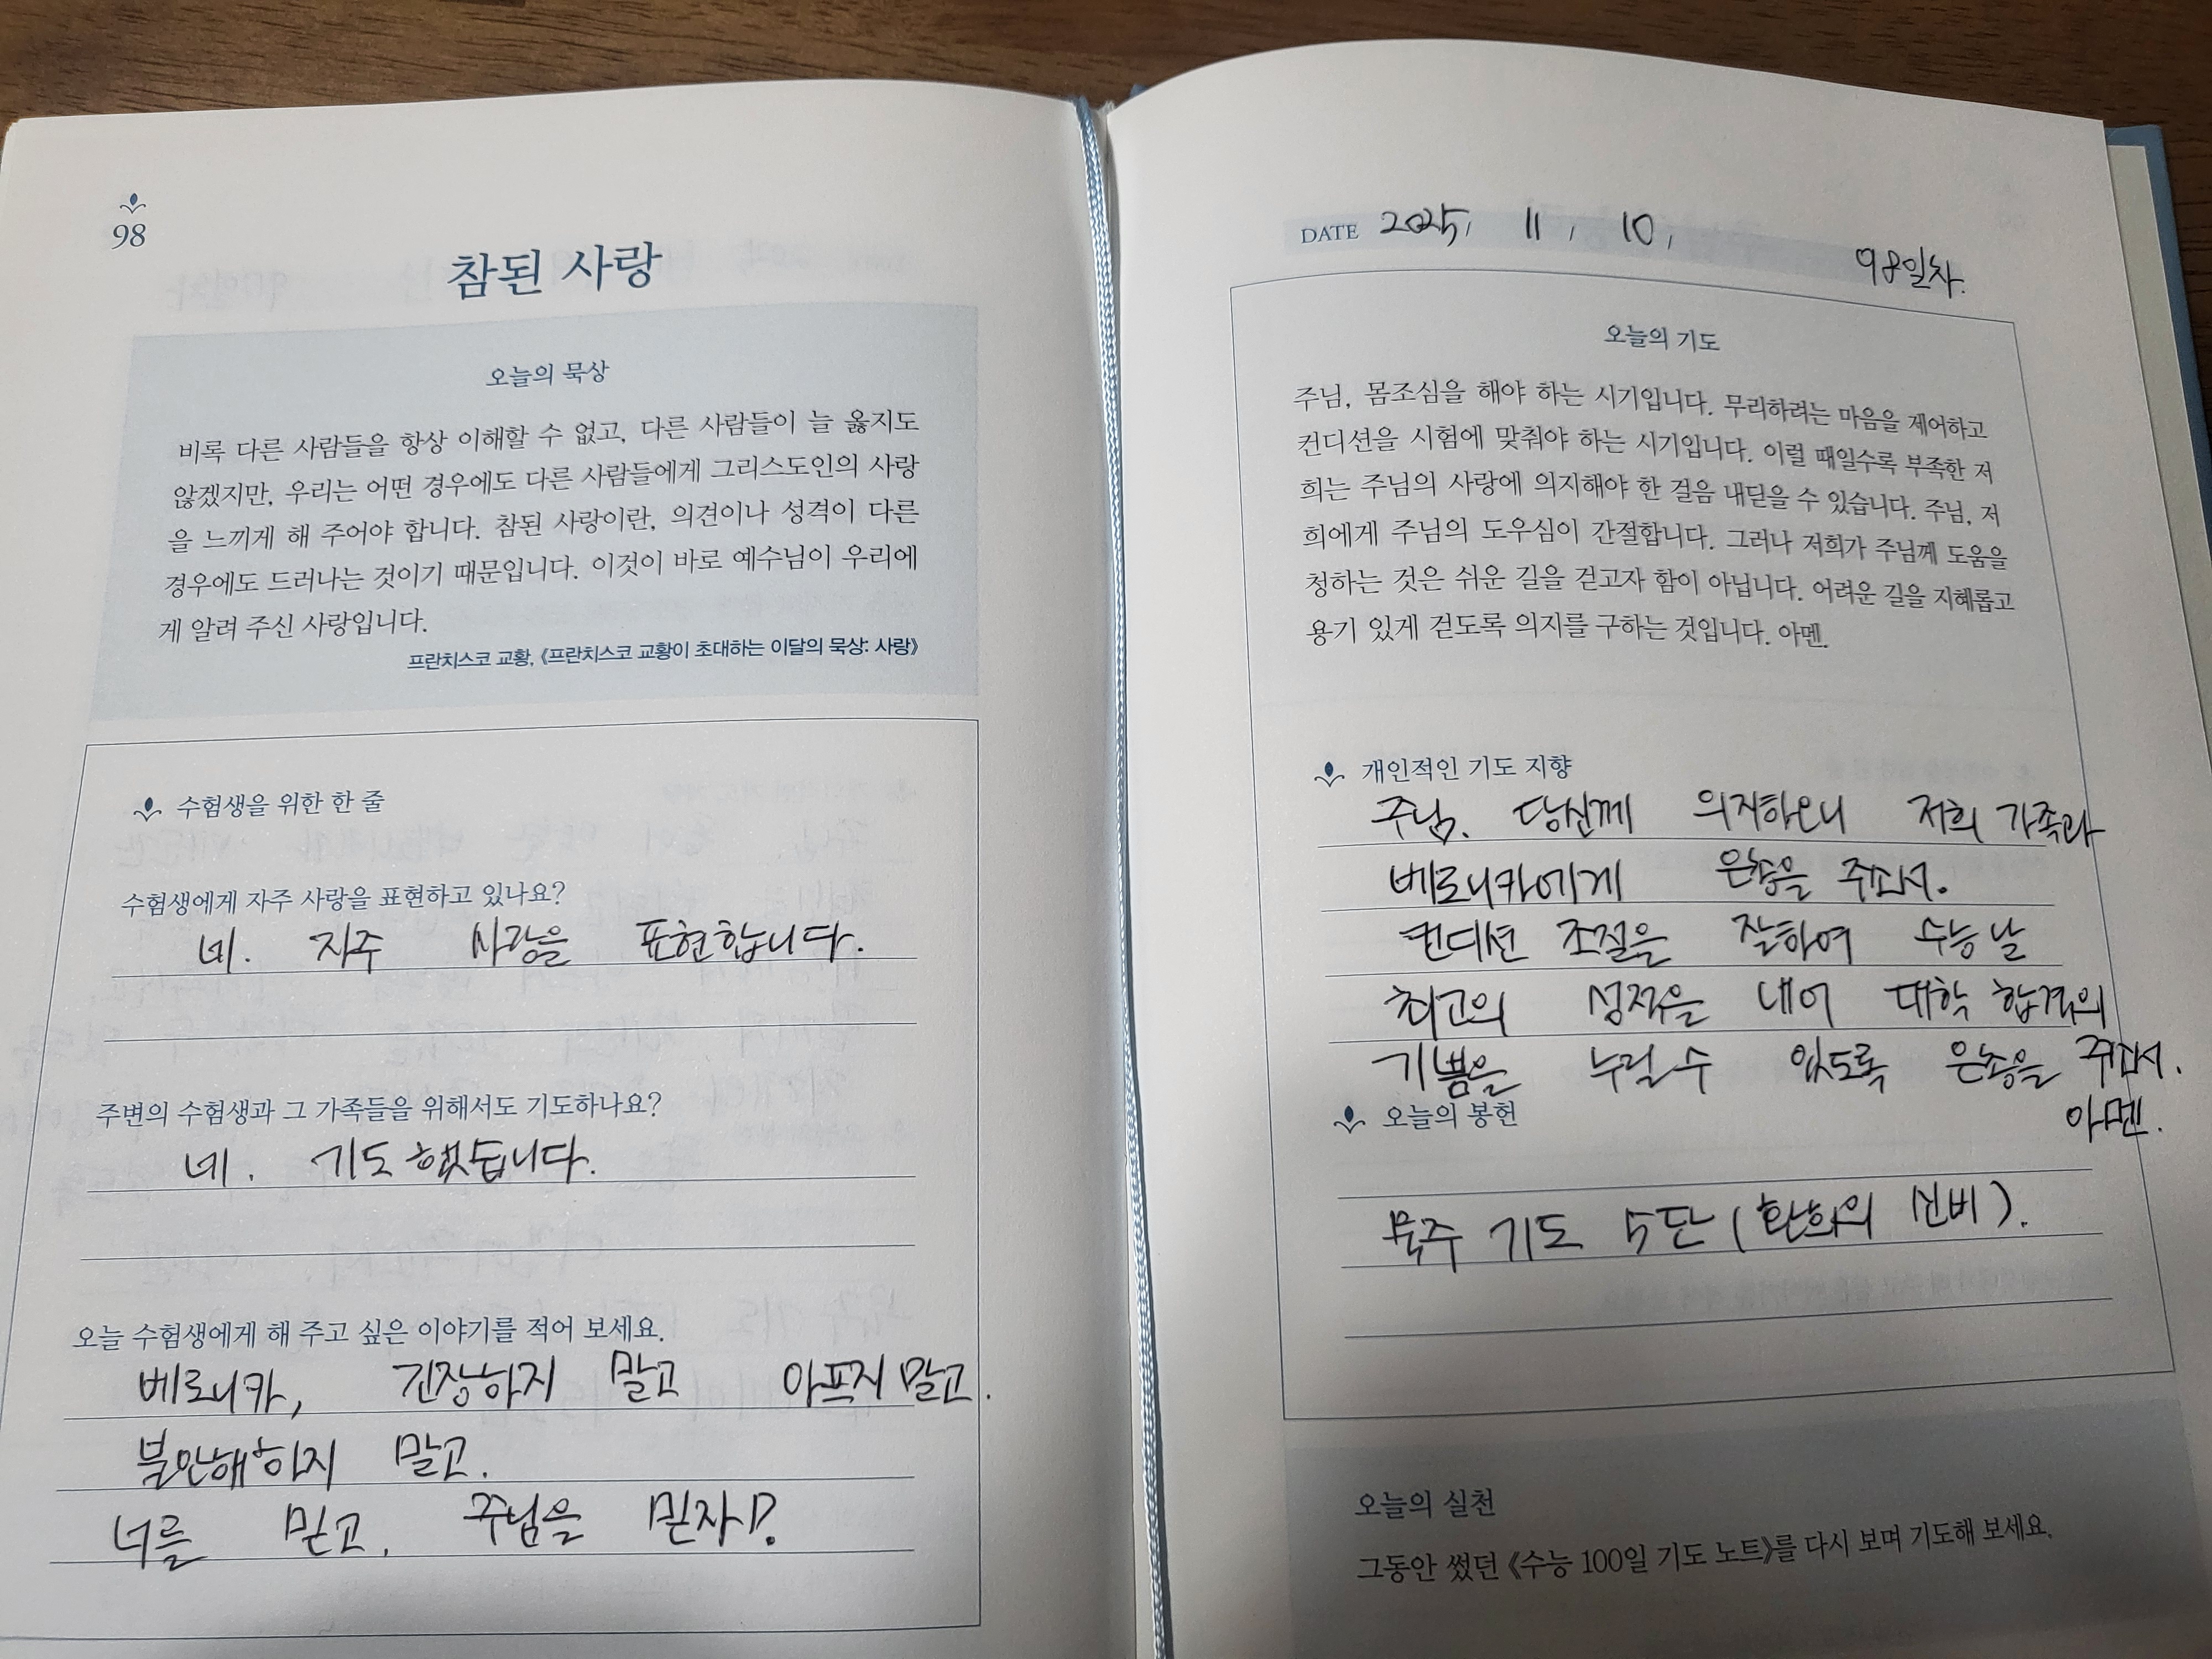 98
참된 사랑
오늘의 묵상
비록 다른 사람들을 항상 이해할 수 없고, 다른 사람들이 늘 옳지도
않겠지만, 우리는 어떤 경우에도 다른 사람들에게 그리스도인의 사랑
을 느끼게 해 주어야 합니다. 참된 사랑이란, 의견이나 성격이 다른
경우에도 드러나는 것이기 때문입니다. 이것이 바로 예수님이 우리에
게 알려 주신 사랑입니다.
프란치스코 교황, 《프란치스코 교황이 초대하는 이달의 묵상: 사랑》
수험생을 위한 한 줄
수험생에게 자주 사랑을 표현하고 있나요?
네. 자주 사랑을 표현합니다.
주변의 수험생과 그 가족들을 위해서도 기도하나요?
네. 기도했습니다.
오늘 수험생에게 해 주고 싶은 이야기를 적어 보세요.
베로니카, 긴장하지 말고 아프지 말고.
불안해하지 말고.
너를 믿고, 주님을 믿자!?
DATE 2025, 11, 10,
98일차.
오늘의 기도
주님, 몸조심을 해야 하는 시기입니다. 무리하려는 마음을 제어하고
컨디션을 시험에 맞춰야 하는 시기입니다. 이럴 때일수록 부족한 저
희는 주님의 사랑에 의지해야 한 걸음 내딛을 수 있습니다. 주님, 저
희에게 주님의 도우심이 간절합니다. 그러나 저희가 주님께 도움을
청하는 것은 쉬운 길을 걷고자 함이 아닙니다. 어려운 길을 지혜롭고
용기 있게 걷도록 의지를 구하는 것입니다. 아멘.
개인적인 기도 지향
주님. 당신께 의지하오니 저희 가족과
베로니카에게 은총을 주소서.
컨디션 조절을 잘하여 수능날
최고의 성적을 내어 대학 합격의
기쁨을 누릴 수 있도록 은총을 주소서.
아멘.
오늘의 봉헌
묵주 기도 5단 (환희의 신비).
오늘의 실천
그동안 썼던 《수능 100일 기도 노트》를 다시 보며 기도해 보세요.